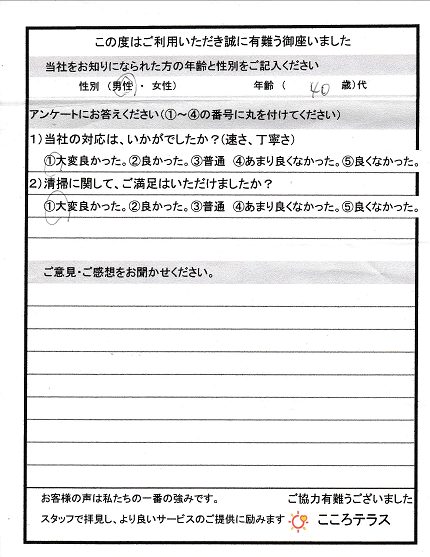 この度はご利用いただき誠に有難う御座いました
当社をお知りになられた方の年齢と性別をご記入ください
性別 (男性 ・ 女性) 年齢 ( 40 歳)代
アンケートにお答えください(①～④の番号に丸を付けてください)
1)当社の対応は、いかがでしたか？(速さ、丁寧さ)
①大変良かった。②良かった。③普通 ④あまり良くなかった。⑤良くなかった。
2)清掃に関して、ご満足はいただけましたか？
①大変良かった。②良かった。③普通 ④あまり良くなかった。⑤良くなかった。
ご意見・ご感想をお聞かせください。
お客様の声は私たちの一番の強みです。 ご協力有難うございました
スタッフで拝見し、より良いサービスのご提供に励みます こころテラス